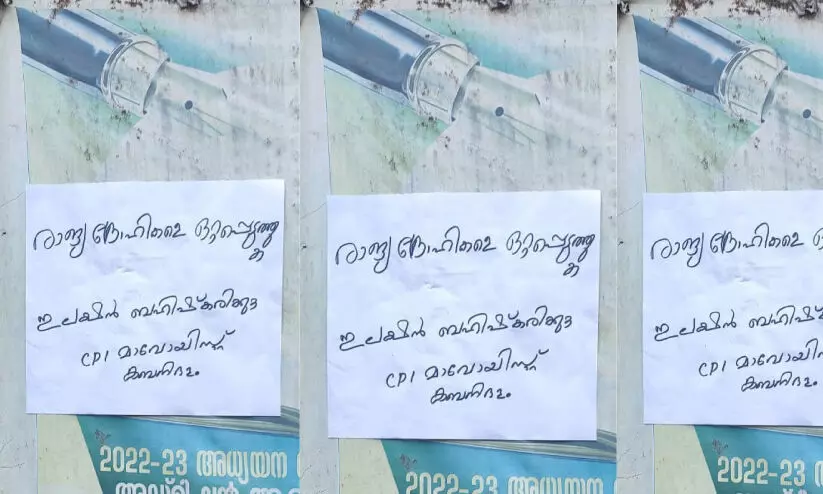 രാജ്യ ദ്രോഹികളെ ഒറ്റപ്പെടുത്തു
ക
ഇലക്ഷൻ ബഹിഷ്കരിക്കുക
CPI മാവോയിസ്റ്റ്
കബനിദളം
2022-23 അധ്യയന
രാജ്യ ദ്രോഹികളെ ഒറ്റപ്പെടുത്തു
ക
ഇലക്ഷൻ ബഹിഷ്കരിക്കുക
CPI മാവോയിസ്റ്റ്
കബനിദളം
2022-23 അധ്യയന
രാജ്യ ദ്രോഹികളെ
ഇലക്ഷൻ
CPI
കബനിദളം
2022-23